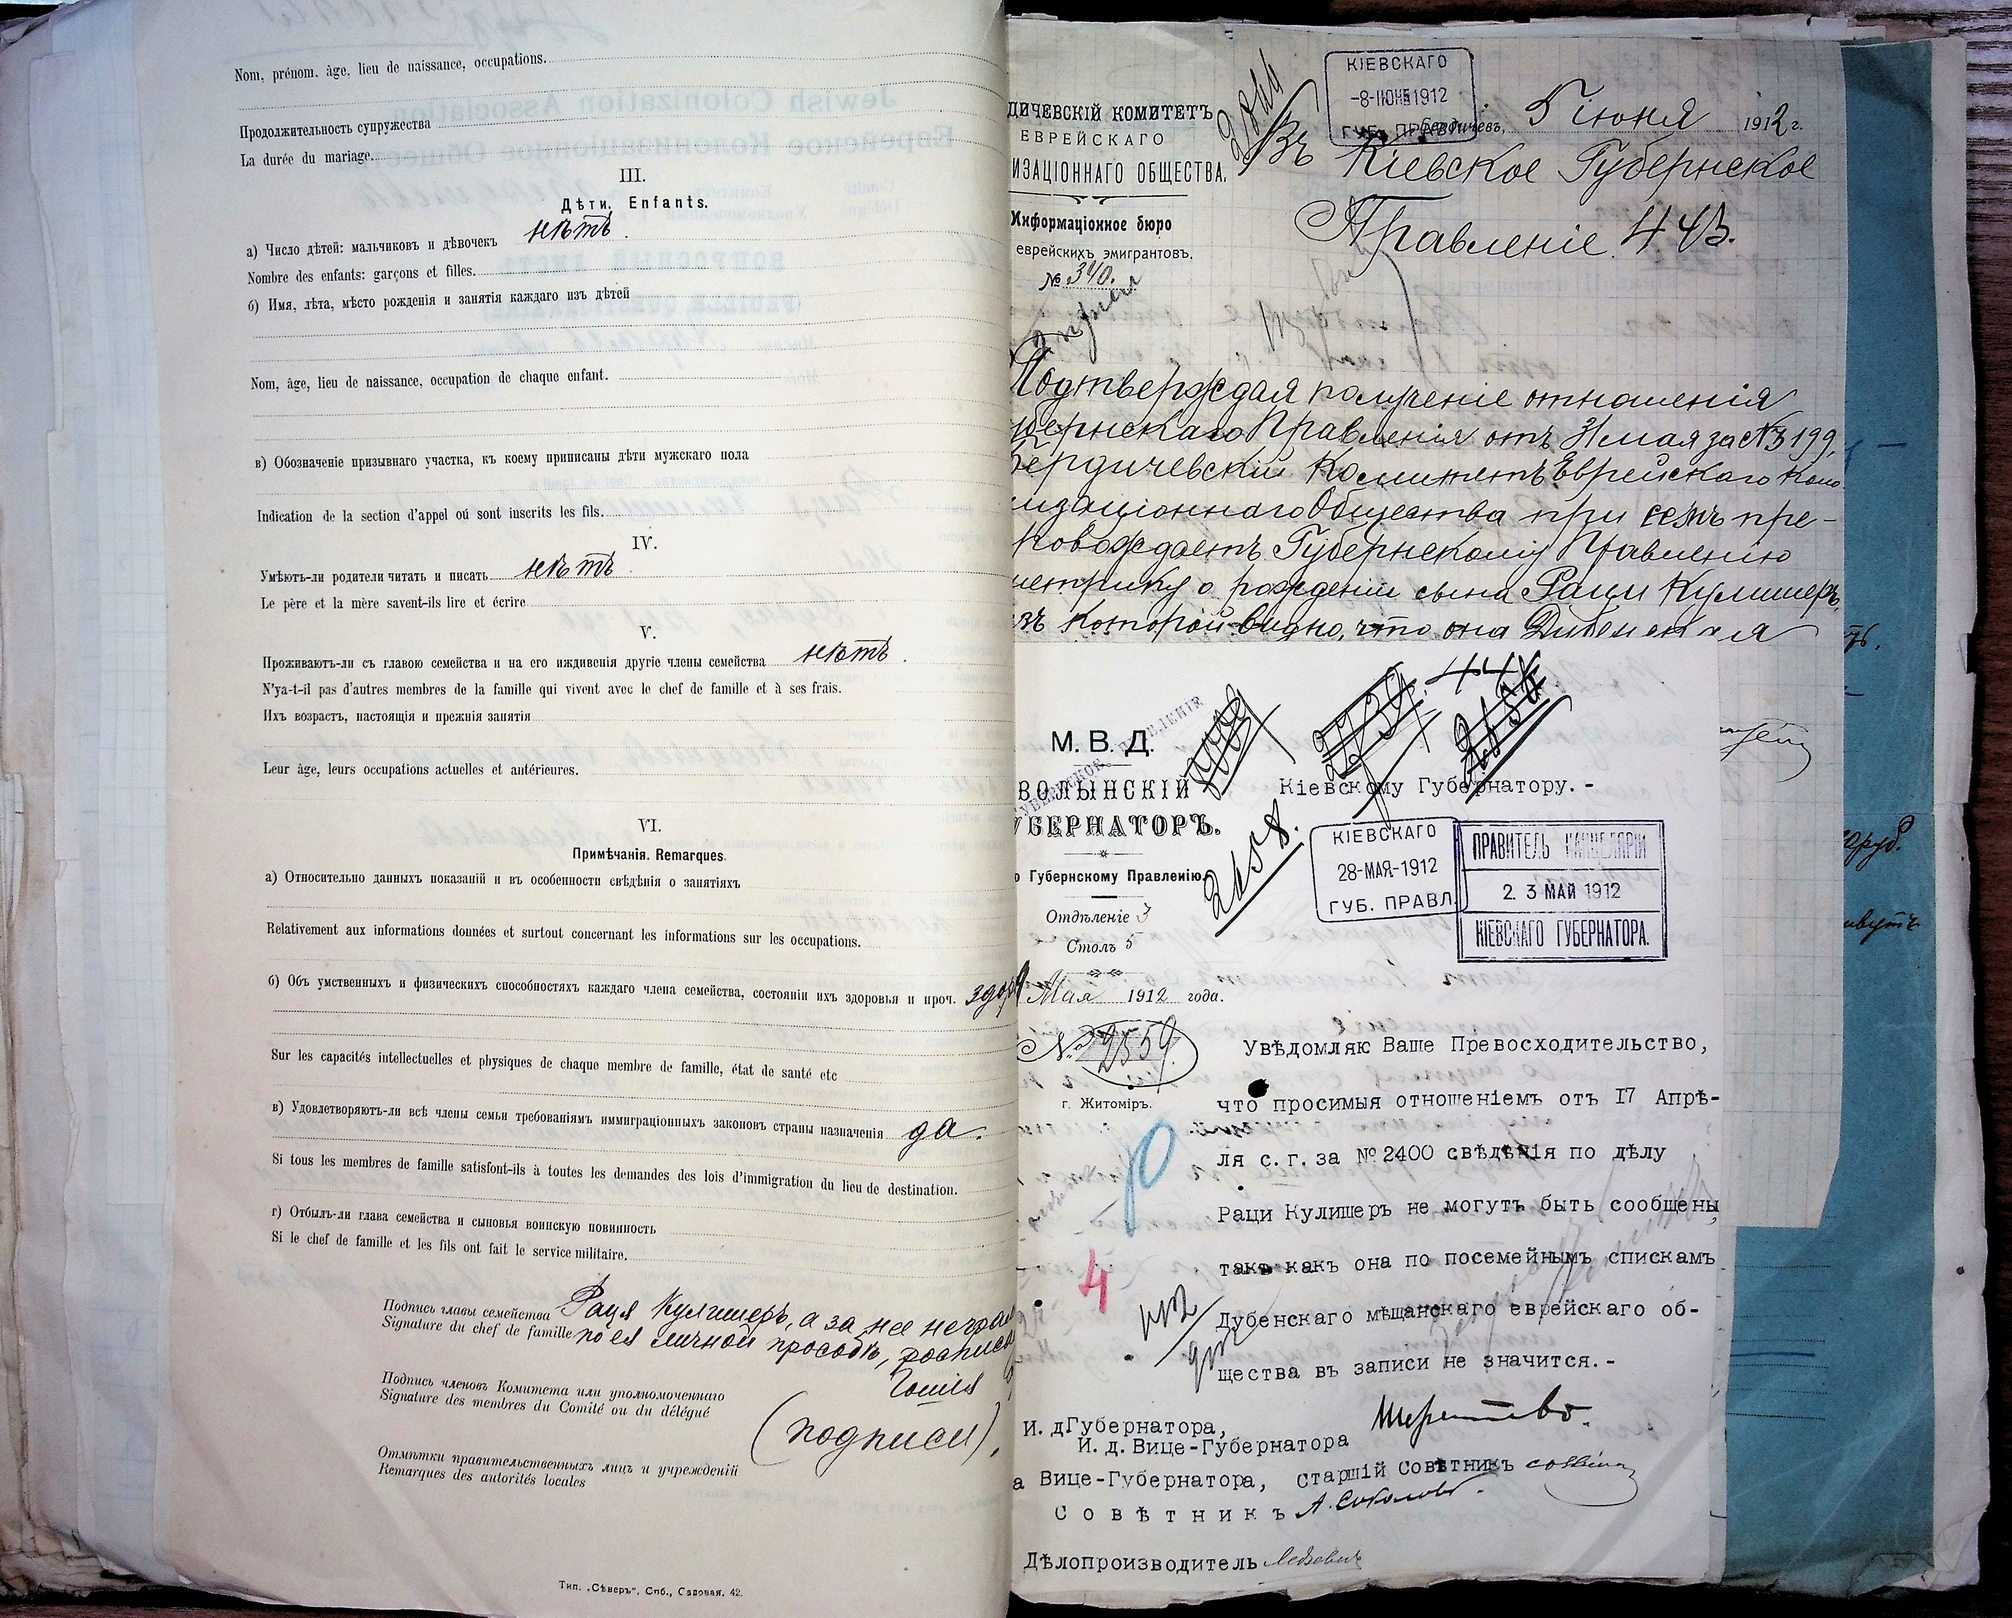 Nom, prénom. âge, lieu de naissance, occupations.
Продолжительность супружества
La durée du mariage.
III.
Дѣти. Enfants.
а) Число дѣтей: мальчиковъ и дѣвочекъ нѣтъ.
Nombre des enfants: garçons et filles.
б) Имя, лѣта, мѣсто рожденія и занятія каждаго изъ дѣтей
Nom, âge, lieu de naissance, occupation de chaque enfant.
в) Обозначеніе призывнаго участка, къ коему приписаны дѣти мужскаго пола
Indication de la section d'appel oú sont inscrits les fils.
IV.
Умѣютъ-ли родители читать и писать нѣтъ.
Le père et la mère savent-ils lire et écrire
V.
Проживаютъ-ли съ главою семейства и на его иждивенія другіе члены семейства нѣтъ.
N'ya-t-il pas d'autres membres de la famille qui vivent avec le chef de famille et à ses frais.
Ихъ возрастъ, настоящія и прежнія занятія
Leur âge, leurs occupations actuelles et antérieures.
VI.
Примѣчанія. Remarques.
а) Относительно данныхъ показаній и въ особенности свѣдѣнія о занятіяхъ
Relativement aux informations données et surtout concernant les informations sur les occupations.
б) Объ умственныхъ и физическихъ способностяхъ каждаго члена семейства, состояніи ихъ здоровья и проч. здор
Sur les capacités intellectuelles et physiques de chaque membre de famille, état de santé etc
в) Удовлетворяютъ-ли всѣ члены семьи требованіямъ иммиграціонныхъ законовъ страны назначенія да.
Si tous les membres de famille satisfont-ils à toutes les demandes des lois d'immigration du lieu de destination.
г) Отбылъ-ли глава семейства и сыновья воинскую повинность
Si le chef de famille et les fils ont fait le service militaire.
Подпись главы семейства Раця Кулишеръ, а за нее неграм
Signature du chef de famille по ея личной просьбѣ, росписа
Подпись членовъ Комитета или уполномоченнаго
Signature des membres du Comité ou du délégué
(подписи),
Отмѣтки правительственныхъ лицъ и учрежденій
Remarques des autorités locales
Тип. „Сѣверъ“, Спб., Садовая, 42.
ДИЧЕВСКІЙ КОМИТЕТЪ
ЕВРЕЙСКАГО
ИЗАЦІОННАГО ОБЩЕСТВА.
Информаціонное бюро
еврейскихъ эмигрантовъ.
№ 340.
КІЕВСКАГО
-8-ІЮНЯ 1912
ГУБ. ПРАВЛ.
Бердичевъ, 5 іюня 1912 г.
Въ Кіевское Губернское
Правленіе.
Подтверждая полученіе отношенія
бернскаго Правленія отъ 31 мая за № 3199,
Бердичевскій Комитетъ Еврейскаго Коло
изаціоннаго Общества при семъ пре-
ковождаетъ Губернскому Правленію
метрику о рожденіи сына Раци Кулишеръ,
изъ которой видно, что она Дубенская
М. В. Д.
ВОЛЫНСКІЙ
УБЕРНАТОРЪ.
о Губернскому Правленію.
Отдѣленіе 3
Столъ 5
Мая 1912 года.
№ 2859.
г. Житоміръ.
Кіевскому Губернатору.-
2158.
КІЕВСКАГО
28-МАЯ-1912
ГУБ. ПРАВЛ.
ПРАВИТЕЛЬ КАНЦЕЛЯРІИ
2. 3 МАЙ 1912
КІЕВСКАГО ГУБЕРНАТОРА.
Увѣдомляю Ваше Превосходительство,
что просимыя отношеніемъ отъ 17 Апрѣ-
ля с.г. за №2400 свѣдѣнія по дѣлу
Раци Кулишеръ не могутъ быть сообщены,
такъ какъ она по посемейнымъ спискамъ
Дубенскаго мѣщанскаго еврейскаго об-
щества въ записи не значится.-
4
И. дГубернатора,
И. д. Вице-Губернатора
а Вице-Губернатора, Старшій Совѣтникъ
Совѣтникъ А. Соколовъ.
Дѣлопроизводитель